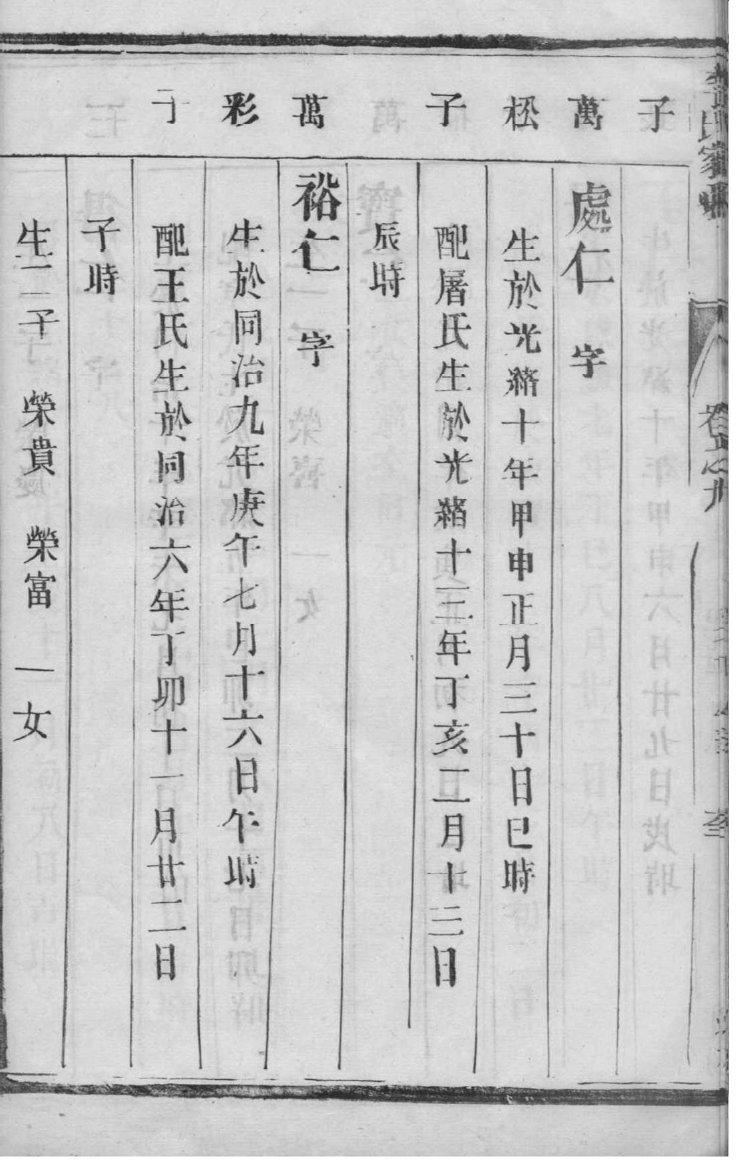 子
萬
處仁 字
松
生於光緒十年甲申正月三十日巳時
子
配屠氏生於光緒十三年丁亥二月十三日
辰時
萬
裕仁 字
彩
生於同治九年庚午七月十六日午時
子
配王氏生於同治六年丁卯十一月廿二日
子時
生二子 榮貴 榮富 一女